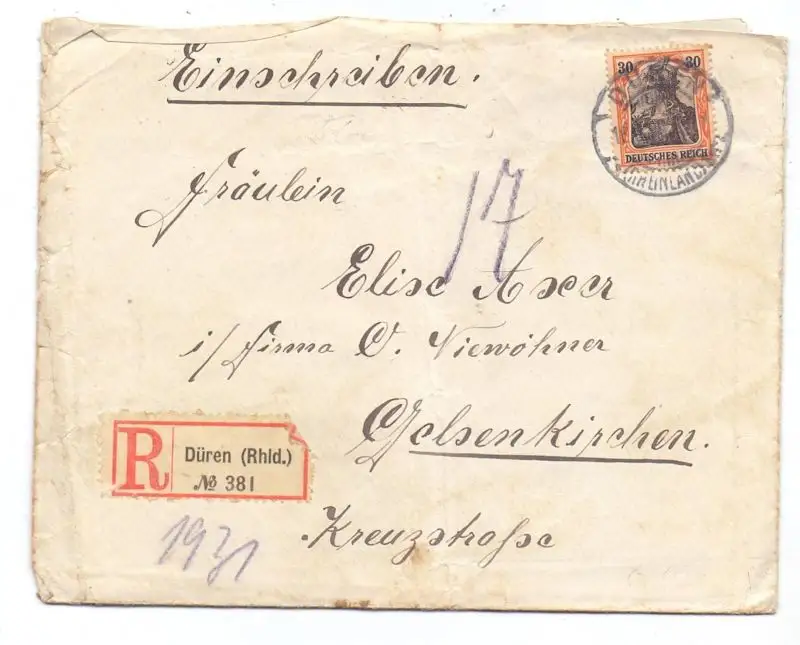 Einschreiben.
30 30
DEUTSCHES REICH
(RHEINLAND)
Fräulein
17
Elise Axer
i/Firma O. Niewöhner
Gelsenkirchen.
R Düren (Rhld.)
№ 381
Kreuzstraße
1931